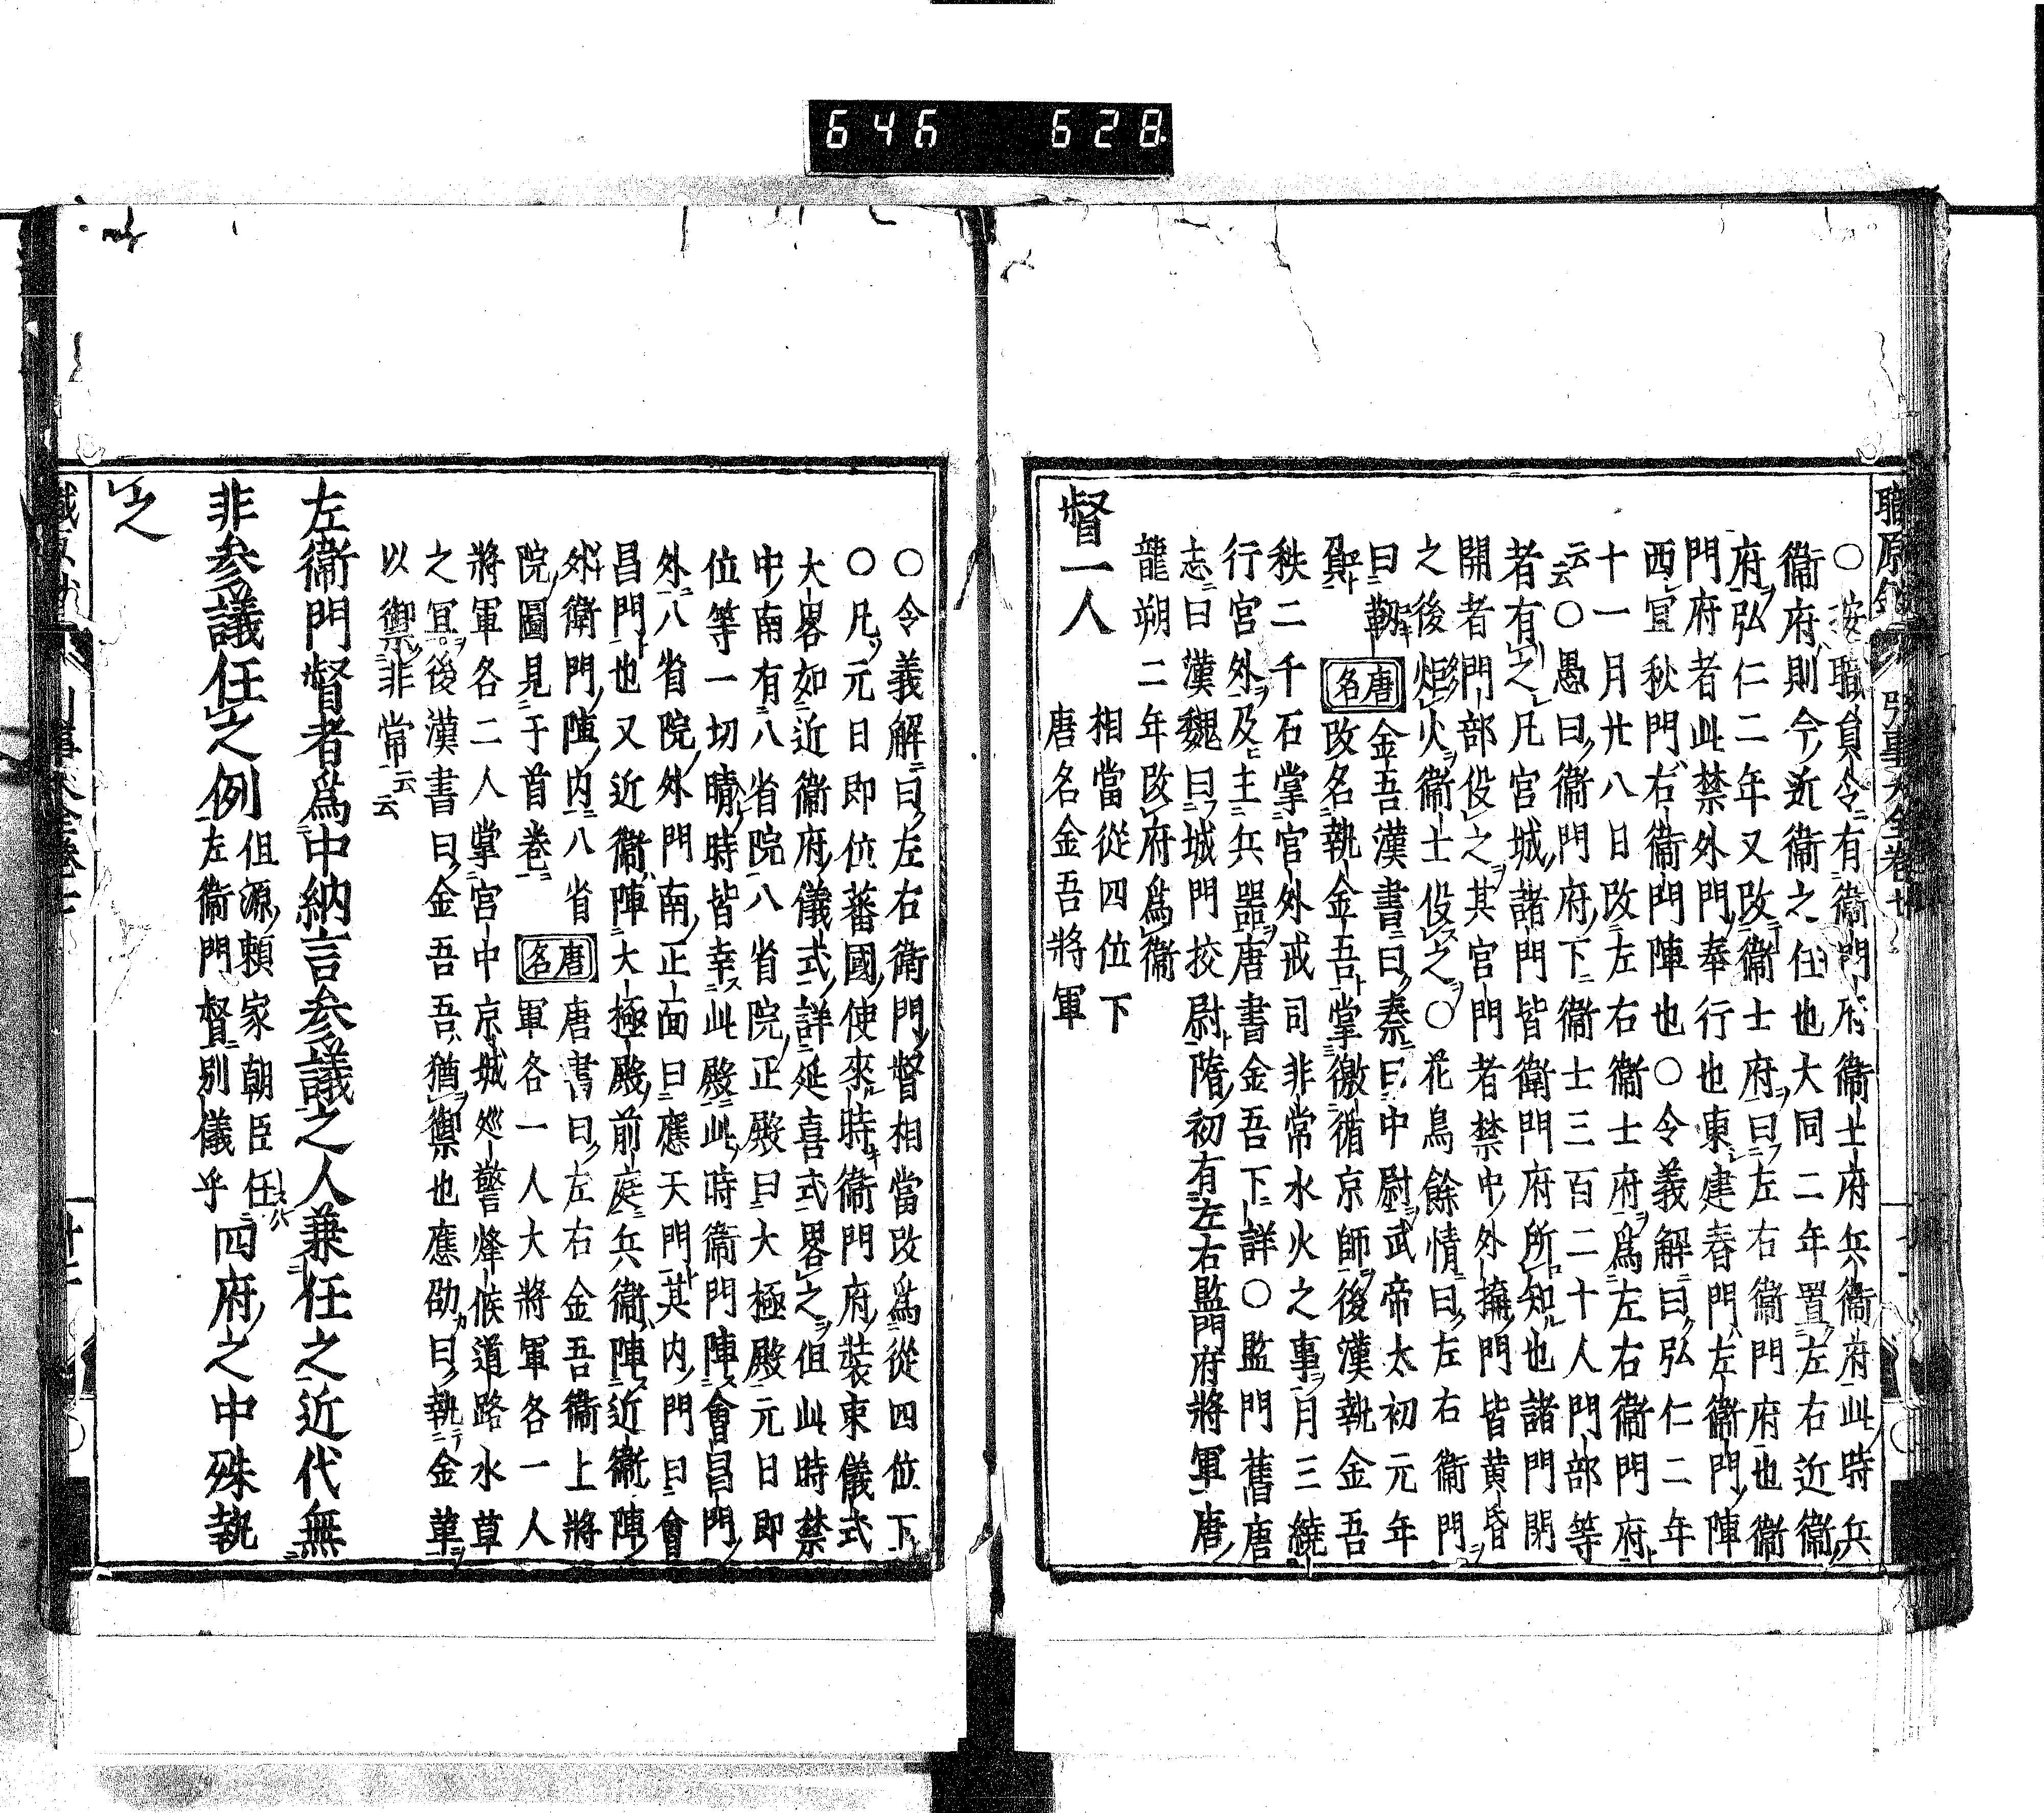 646 628
職原鈔
引事大全卷七
○按職員令有衞門府衞士府兵衞府此時兵
衞府則今近衞之任也大同二年置左右近衞
府弘仁二年又改衞士府曰左右衞門府也衞
門府者此禁外門奉行也東建春門左衞門陣
西宜秋門右衞門陣也○令義解曰弘仁二年
十一月廿八日改左右衞士府爲左右衞門府
云云○愚曰衞門府下衞士三百二十人門部等
者有之凡宮城諸門皆衛門府所知也諸門閉
開者門部役之其宮門者禁中外擁門皆黄昏
之後炬火衞士役之○花鳥餘情曰左右衞門
曰靱 唐名 金吾漢書曰秦曰中尉武帝太初元年
改名執金吾掌徼循京師後漢執金吾
秩二千石掌宮外戒司非常水火之事月三繞
行宮外及主兵器唐書金吾下詳○監門舊唐
志曰漢魏曰城門挍尉隋初有左右監門府將軍唐
龍朔二年改府爲衞
督一人 相當從四位下
唐名金吾將軍
○令義解曰左右衛門督相當改爲從四位下
○凡元日即位蕃國使來時衞門府裝束儀式
大畧如近衞府儀式詳延喜式畧之但此時禁
中南有八省院八省院正殿曰大極殿元日即
位等一切晴時皆幸此殿此時衞門陣會昌門
外八省院外門南正面曰應天門其内門曰會
昌門也又近衞陣大極殿前庭兵衞陣近衞陣
外衛門陣内八省 唐書曰左右金吾衞上將
院圖見于首巻 唐名 軍各一人大將軍各一人
將軍各二人掌宮中京城巡警烽候道路水草
之冝後漢書曰金吾吾猶禦也應劭曰執金革
以禦非常云云
左衞門督者爲中納言参議之人兼任之近代無
非参議任之例 但源頼家朝臣任 左衞門督別儀乎 四府之中殊執
之